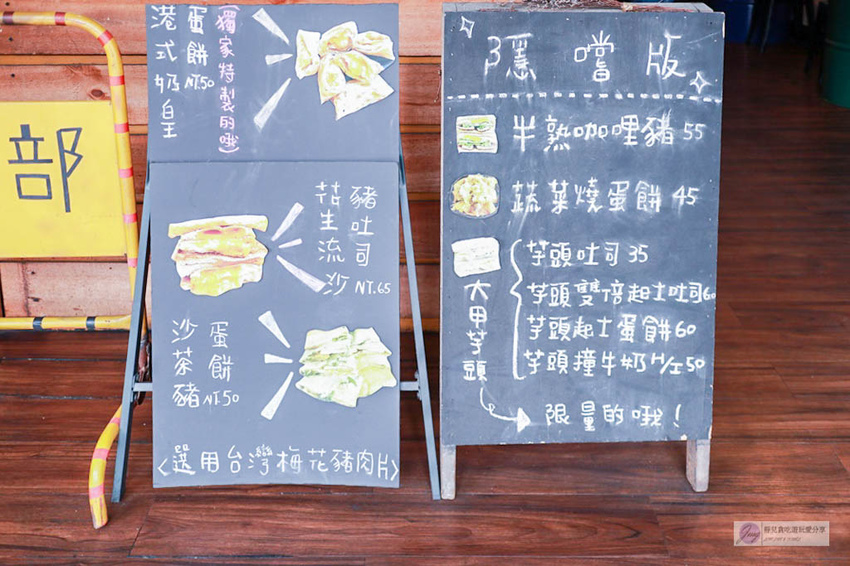 部
港式奶皇
蛋餅
NT.50
(獨家特製的哦)
花生流沙
豬吐司
NT.65
沙茶豬
蛋餅
NT.50
<選用台灣梅花豬肉片>
隱嚐版
半熟咖哩豬 55
蔬菜燒蛋餅 45
大甲芋頭
芋頭吐司 35
芋頭雙倍起士吐司60
芋頭起士蛋餅60
芋頭撞牛奶H/I50
限量的哦!